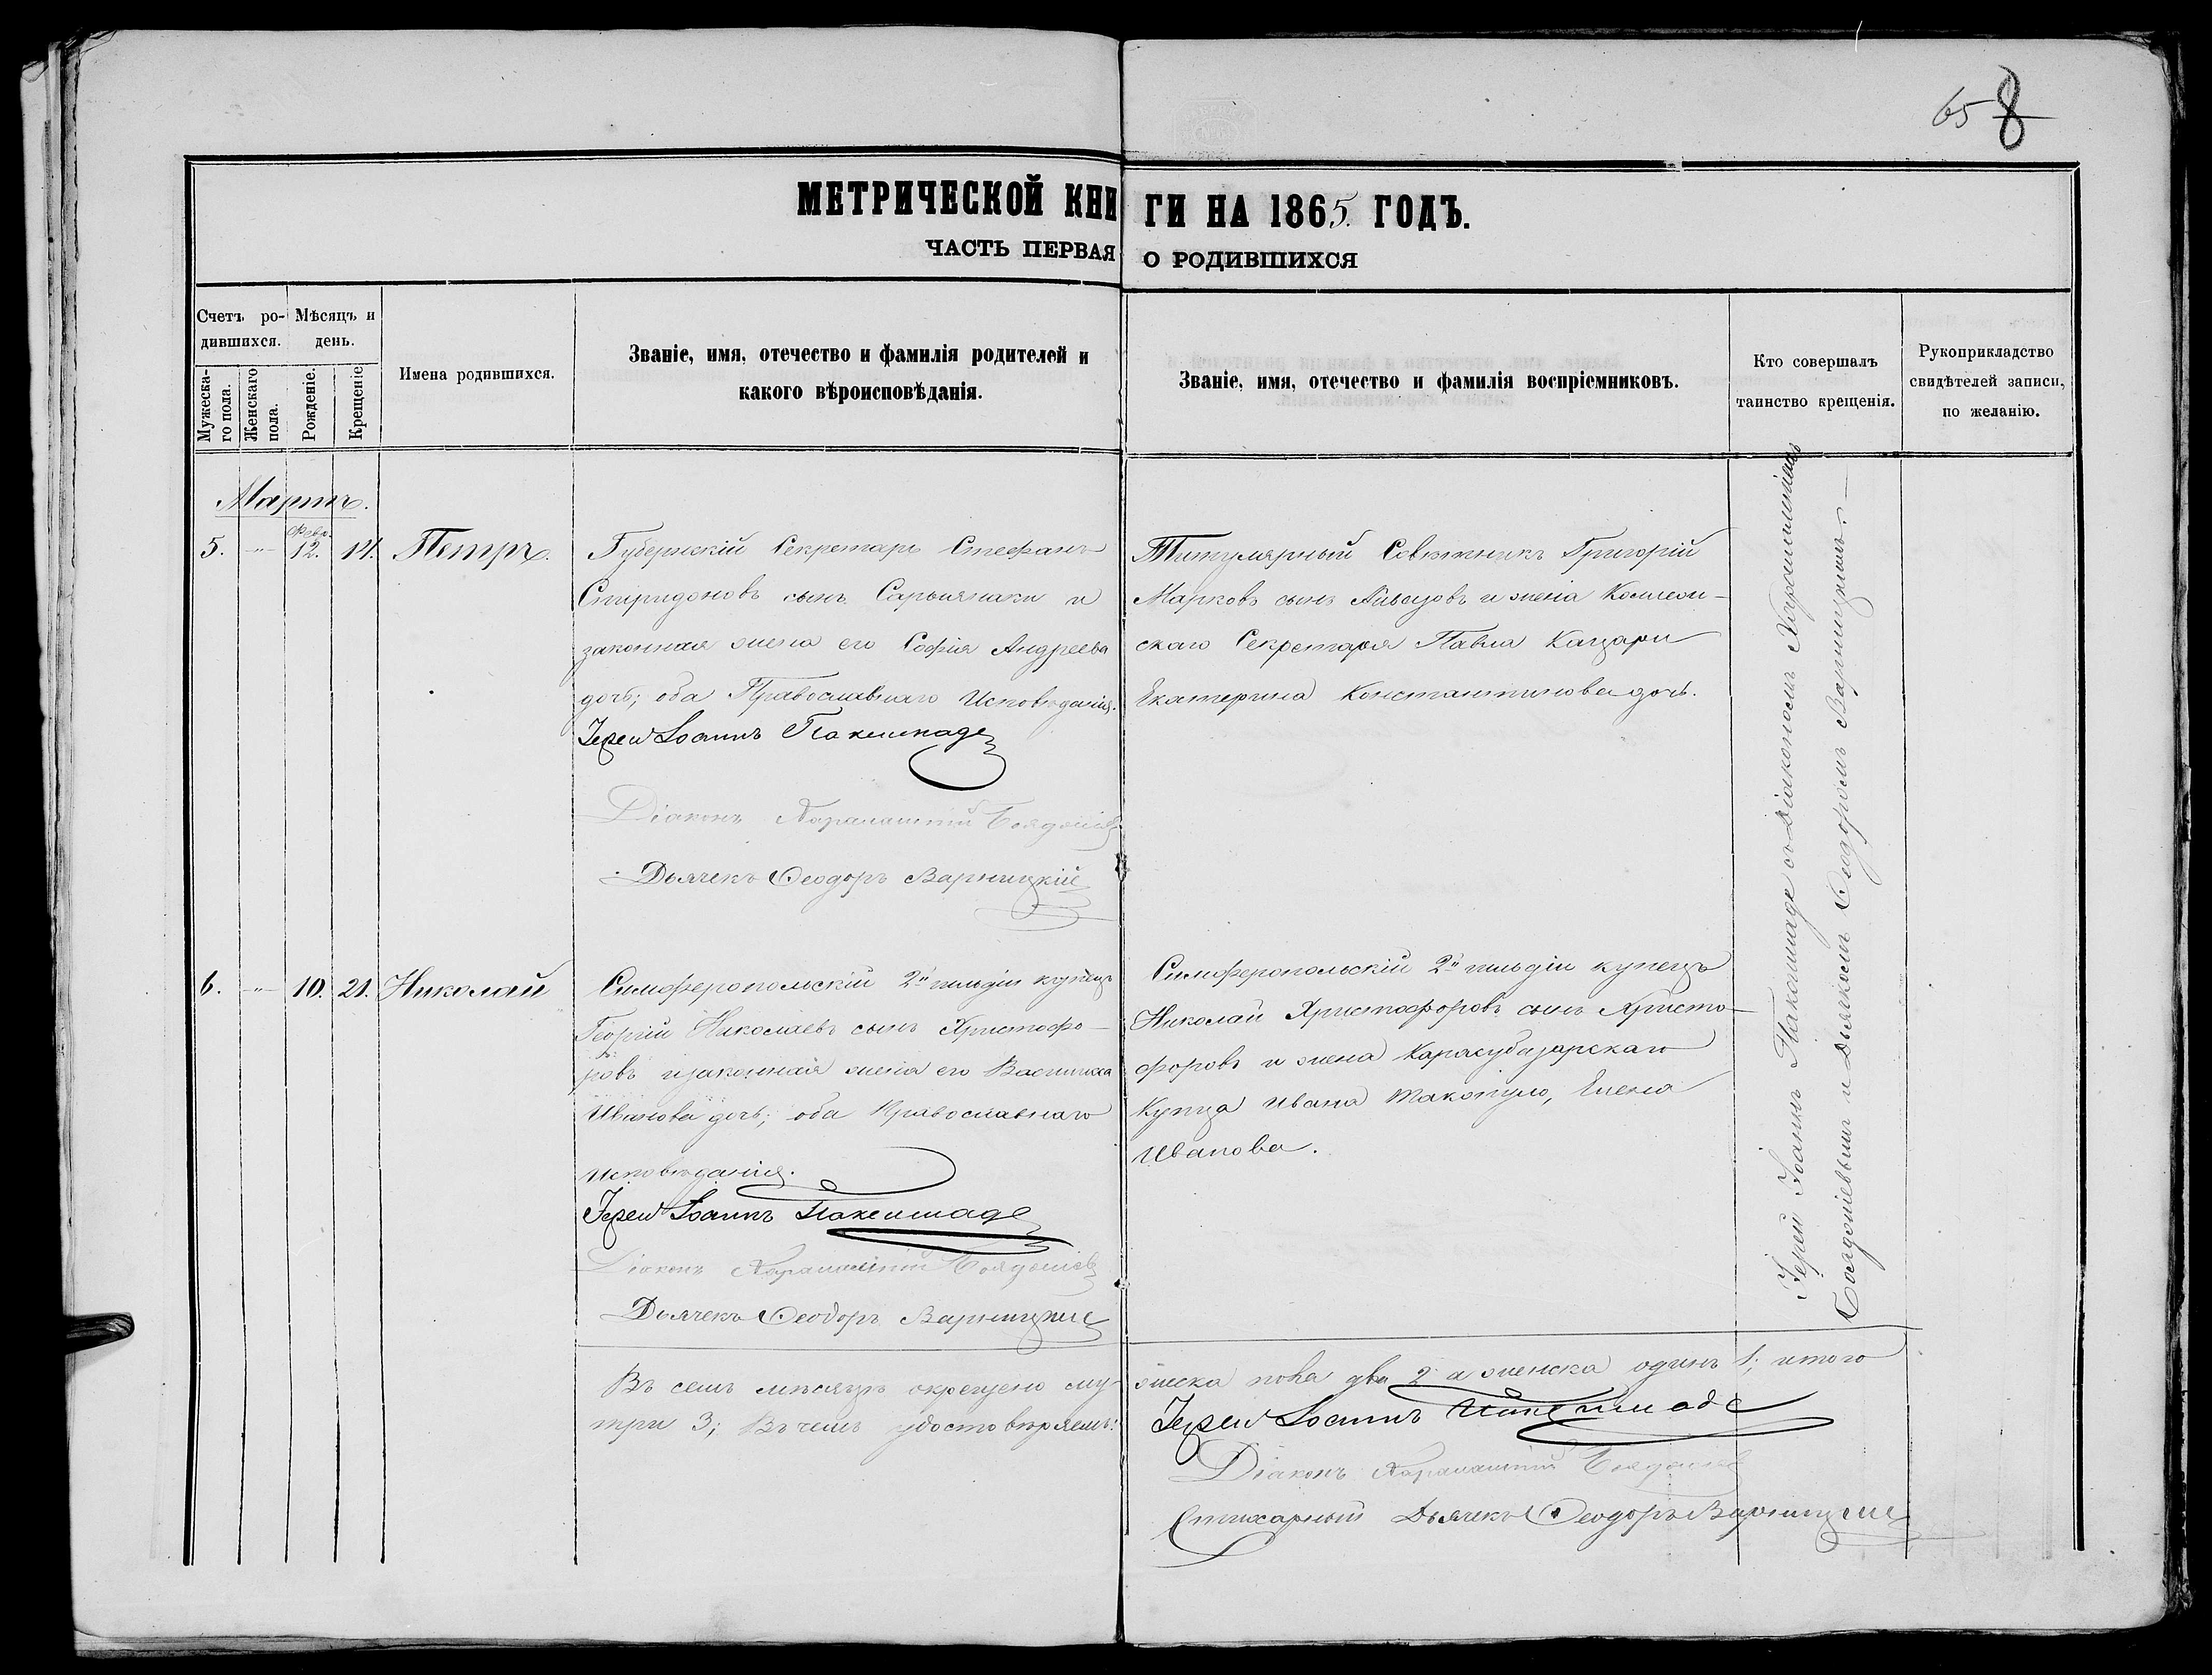 65 8
МЕТРИЧЕСКОЙ КНИГИ НА 1865. ГОДЪ.
ЧАСТЬ ПЕРВАЯ О РОДИВШИХСЯ
Счетъ ро-
дившихся.
Мужеска-
го пола.
Женскаго
пола.
Мѣсяцъ и
день.
Рожденіе.
Крещеніе.
Имена родившихся.
Званіе, имя, отечество и фамилія родителей и
какого вѣроисповѣданія.
Званіе, имя, отечество и фамилія воспріемниковъ.
Кто совершалъ
таинство крещенія.
Рукоприкладство
свидѣтелей записи,
по желанію.
Мартъ.
5. -"- Февр. 12. 14. Петръ.
Губернскій Секретарь Стефанъ
Спиридоновъ сынъ и
законная жена его Софія Андреева
дочь; оба Православнаго Исповѣданія.
Іерей Іоаннъ
Діаконъ Харалампій
Дьячекъ Ѳеодоръ Варницкій
Титулярный Совѣтникъ Григорій
Марковъ сынъ и жена Коллеж-
скаго Секретаря Павла Кацари
Екатерина Константинова дочь.
6. -"- 10. 21. Николай
Симферопольскій 2й гильдіи купецъ
Георгій Николаевъ сынъ Христофо-
ровъ и законная жена его Василиса
Иванова дочь; оба Православнаго
исповѣданія.
Іерей Іоаннъ
Діаконъ Харалампій
Дьячекъ Ѳеодоръ Варницкій
Симферопольскій 2й гильдіи купецъ
Николай Христофоровъ сынъ Христо-
форовъ и жена Карасубазарскаго
Купца Ивана Макопуло, Елена
Иванова.
Іерей Іоаннъ съ Діакономъ Харалампіемъ
и Дьячкомъ Ѳеодоромъ Варницкимъ.
Въ семъ мѣсяцѣ окрещено му-
жеска пола два 2 а женска одинъ 1; итого
три 3; Въ чемъ удостовѣряемъ:
Іерей Іоаннъ
Діаконъ Харалампій
Стихарный Дьячекъ Ѳеодоръ Варницкій